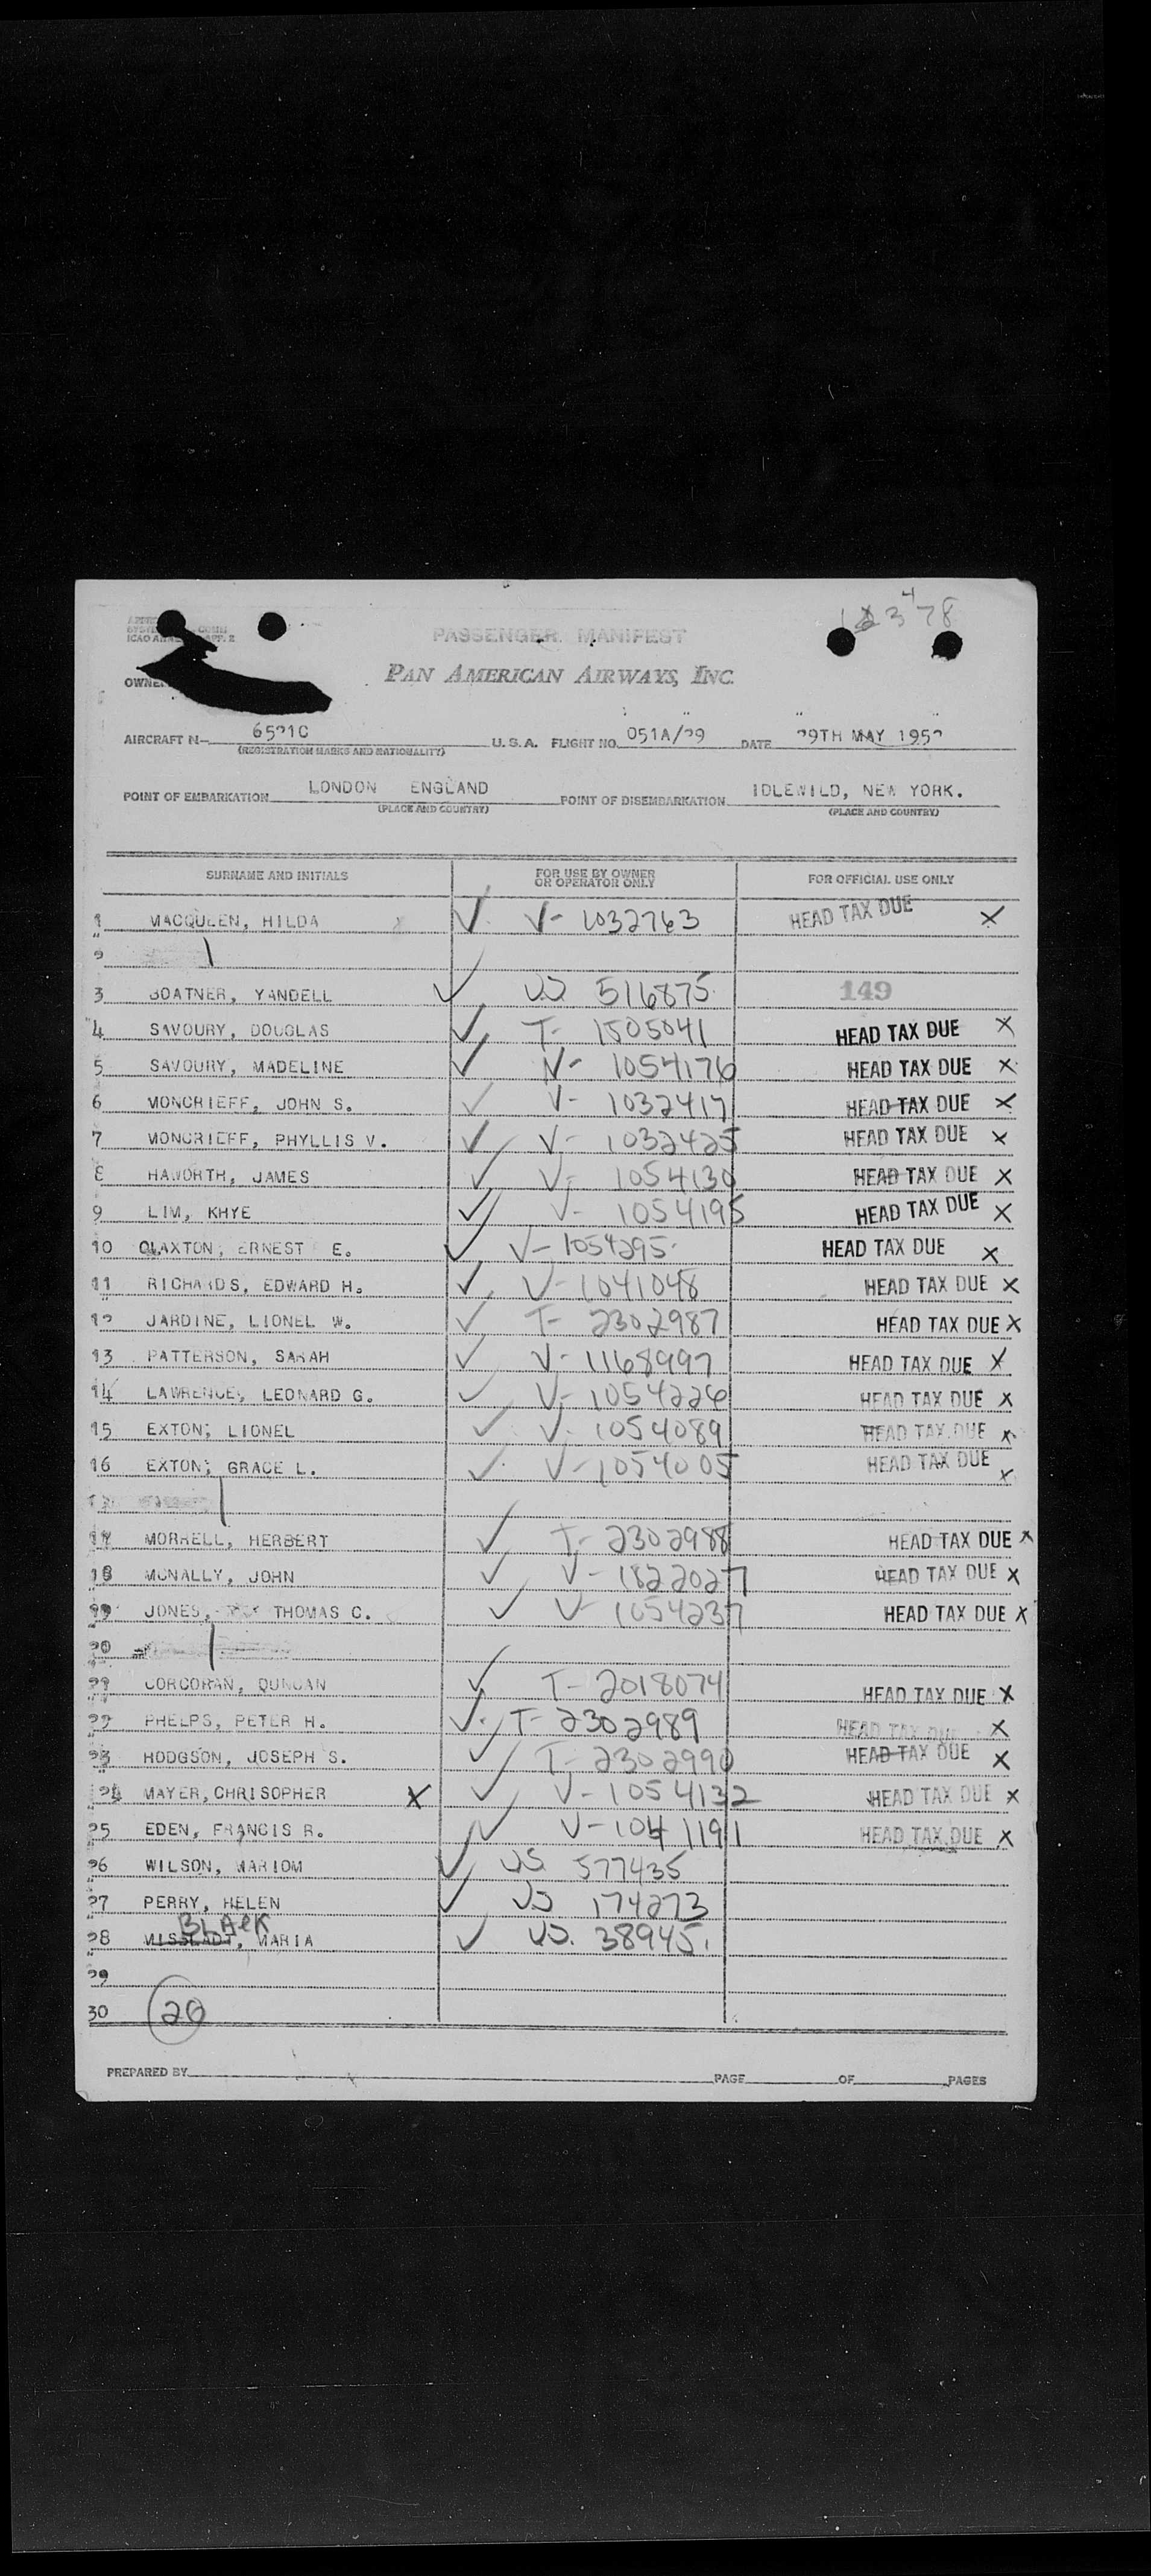 PASSENGER MANIFEST
ICAO
APP. 2
PAN AMERICAN AIRWAYS, INC.
AIRCRAFT N— 6521C U.S.A. FLIGHT NO. 051A/29 DATE 29TH MAY 1952
(REGISTRATION MARKS AND NATIONALITY)
POINT OF EMBARKATION LONDON ENGLAND POINT OF DISEMBARKATION IDLEWILD, NEW YORK.
(PLACE AND COUNTRY) (PLACE AND COUNTRY)
SURNAME AND INITIALS FOR USE BY OWNER OR OPERATOR ONLY FOR OFFICIAL USE ONLY
1 MACQUEEN, HILDA V- 1032763 HEAD TAX DUE X
2
3 BOATNER, YANDELL US 516875 149
4 SAVOURY, DOUGLAS T- 1505041 HEAD TAX DUE X
5 SAVOURY, MADELINE V- 1054176 HEAD TAX DUE X
6 MONCRIEFF, JOHN S. V- 1032417 HEAD TAX DUE X
7 MONCRIEFF, PHYLLIS V. V- 1032425 HEAD TAX DUE X
8 HAWORTH, JAMES V- 1054130 HEAD TAX DUE X
9 LIM, KHYE V- 1054195 HEAD TAX DUE X
10 CLAXTON, ERNEST E. V- 1054295 HEAD TAX DUE X
11 RICHARDS, EDWARD H. V- 1041048 HEAD TAX DUE X
12 JARDINE, LIONEL W. T- 2302987 HEAD TAX DUE X
13 PATTERSON, SARAH V- 1168997 HEAD TAX DUE X
14 LAWRENCE, LEONARD G. V- 1054226 HEAD TAX DUE X
15 EXTON, LIONEL V- 1054089 HEAD TAX DUE X
16 EXTON, GRACE L. V- 1054005 HEAD TAX DUE X
MORRELL, HERBERT T- 2302988 HEAD TAX DUE X
18 MCNALLY, JOHN V- 1822027 HEAD TAX DUE X
JONES, THOMAS C. V- 1054237 HEAD TAX DUE X
20
CORCORAN, DUNCAN T- 2018074 HEAD TAX DUE X
22 PHELPS, PETER H. T- 2302989 HEAD TAX DUE X
23 HODGSON, JOSEPH S. T- 2302990 HEAD TAX DUE X
24 MAYER, CHRISOPHER X V- 1054132 HEAD TAX DUE X
25 EDEN, FRANCIS R. V- 1041191 HEAD TAX DUE X
26 WILSON, MARIOM US 577435
27 PERRY, HELEN US 174273
BLACK
28 MISSLADT, MARIA US. 38945.
29
30 20
PREPARED BY PAGE OF PAGES